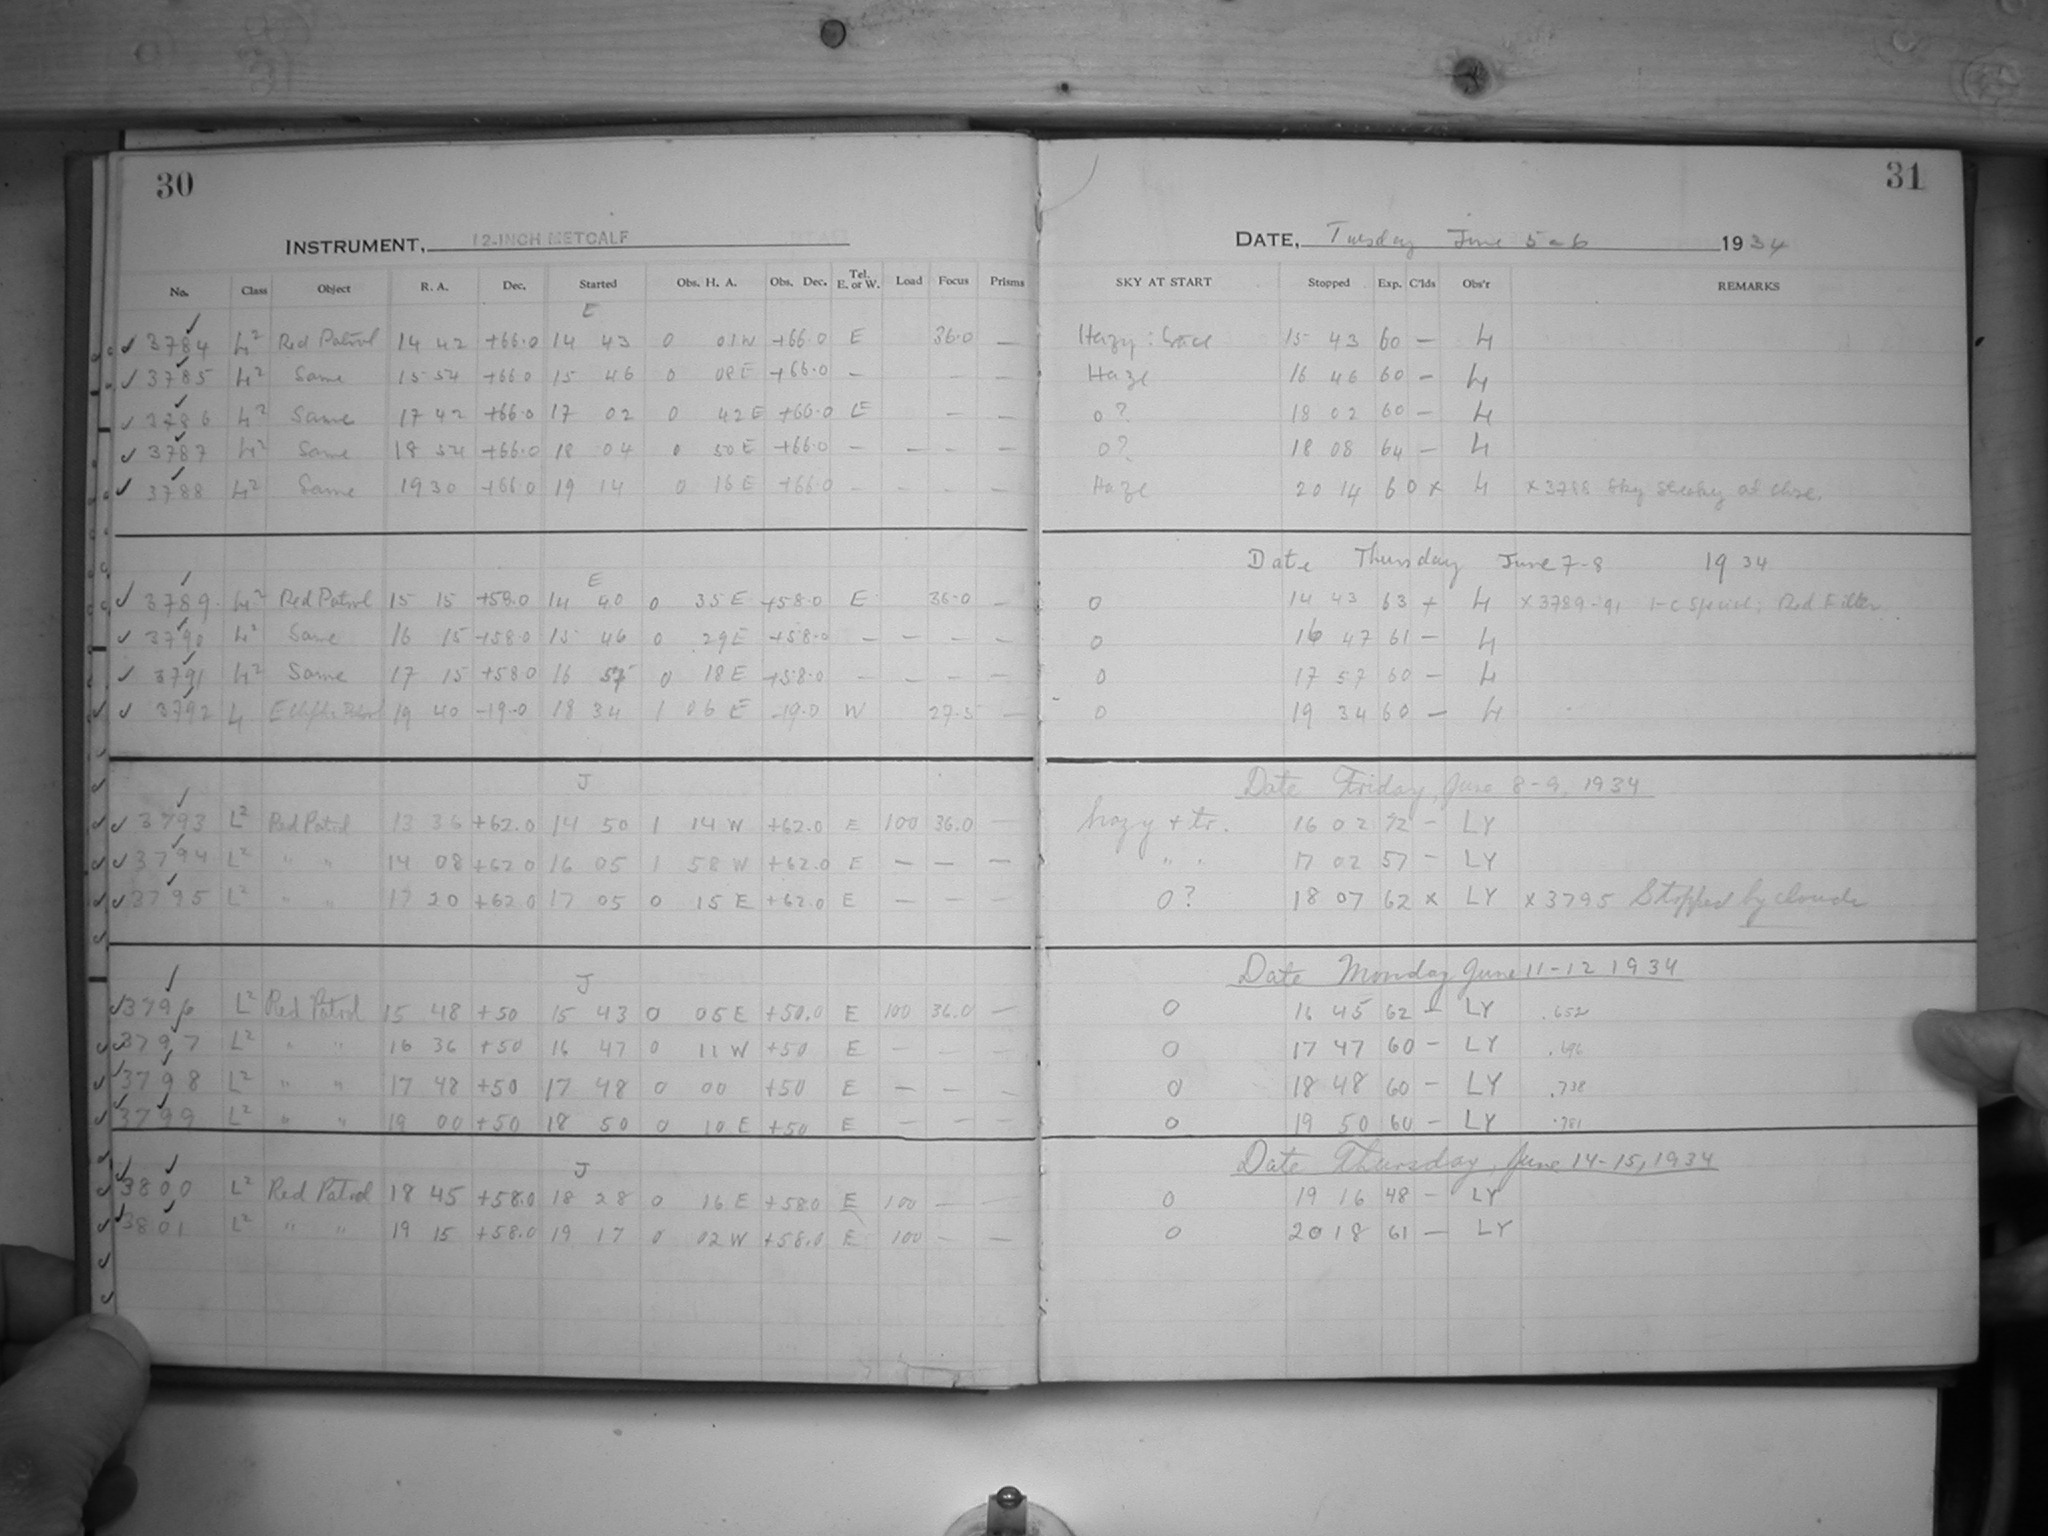 30
31
INSTRUMENT, 12-INCH METCALF
DATE, Tuesday June 5-6 1934
No. Class Object R. A. Dec. Started Obs. H. A. Obs. Dec. Tel. E. or W. Load Focus Prisms SKY AT START Stopped Exp. C'lds Obs'r REMARKS
E
3784 4² Red Patrol 14 42 +66.0 14 43 0 01W +66.0 E 36.0 — Hazy: 15 43 60 — 4
3785 4² Same 15 54 +66.0 15 46 0 08E +66.0 — — — Haze 16 46 60 — 4
3786 4² Same 17 42 +66.0 17 02 0 42E +66.0 E — — 0? 18 02 60 — 4
3787 4² Same 18 54 +66.0 18 04 0 50E +66.0 — — — — 0? 18 08 64 — 4
3788 4² Same 19 30 +66.0 19 14 0 16E +66.0 — — — — Haze 20 14 60 x 4 x 3788 Sky streaky at close.
Date Thursday June 7-8 1934
E
3789 4² Red Patrol 15 15 +58.0 14 40 0 35E +58.0 E 36.0 — 0 14 43 63 + 4 x 3789-91 1-C Special; Red Filter
3790 4² Same 16 15 +58.0 15 46 0 29E +58.0 — — — — 0 16 47 61 — 4
3791 4² Same 17 15 +58.0 16 57 0 18E +58.0 — — — — 0 17 57 60 — 4
3792 4 Ecliptic Patrol 19 40 -19.0 18 34 1 06 E -19.0 W 27.5 — 0 19 34 60 — 4
Date Friday, June 8-9, 1934
J
3793 L² Red Patrol 13 36 +62.0 14 50 1 14 W +62.0 E 100 36.0 — hazy + tr. 16 02 72 — LY
3794 L² " " 14 08 +62.0 16 05 1 58 W +62.0 E — — — " " 17 02 57 — LY
3795 L² " " 17 20 +62.0 17 05 0 15 E +62.0 E — — — 0? 18 07 62 x LY x 3795 Stopped by clouds
Date Monday June 11-12 1934
J
3796 L² Red Patrol 15 48 +50 15 43 0 05E +50.0 E 100 36.0 — 0 16 45 62 — LY .652
3797 L² " " 16 36 +50 16 47 0 11 W +50 E — — — 0 17 47 60 — LY .696
3798 L² " " 17 48 +50 17 48 0 00 +50 E — — — 0 18 48 60 — LY .738
3799 L² " " 19 00 +50 18 50 0 10 E +50 E — — — 0 19 50 60 — LY .781
Date Thursday, June 14-15, 1934
J
3800 L² Red Patrol 18 45 +58.0 18 28 0 16 E +58.0 E 100 — — 0 19 16 48 — LY
3801 L² " " 19 15 +58.0 19 17 0 02 W +58.0 E 100 — — 0 20 18 61 — LY